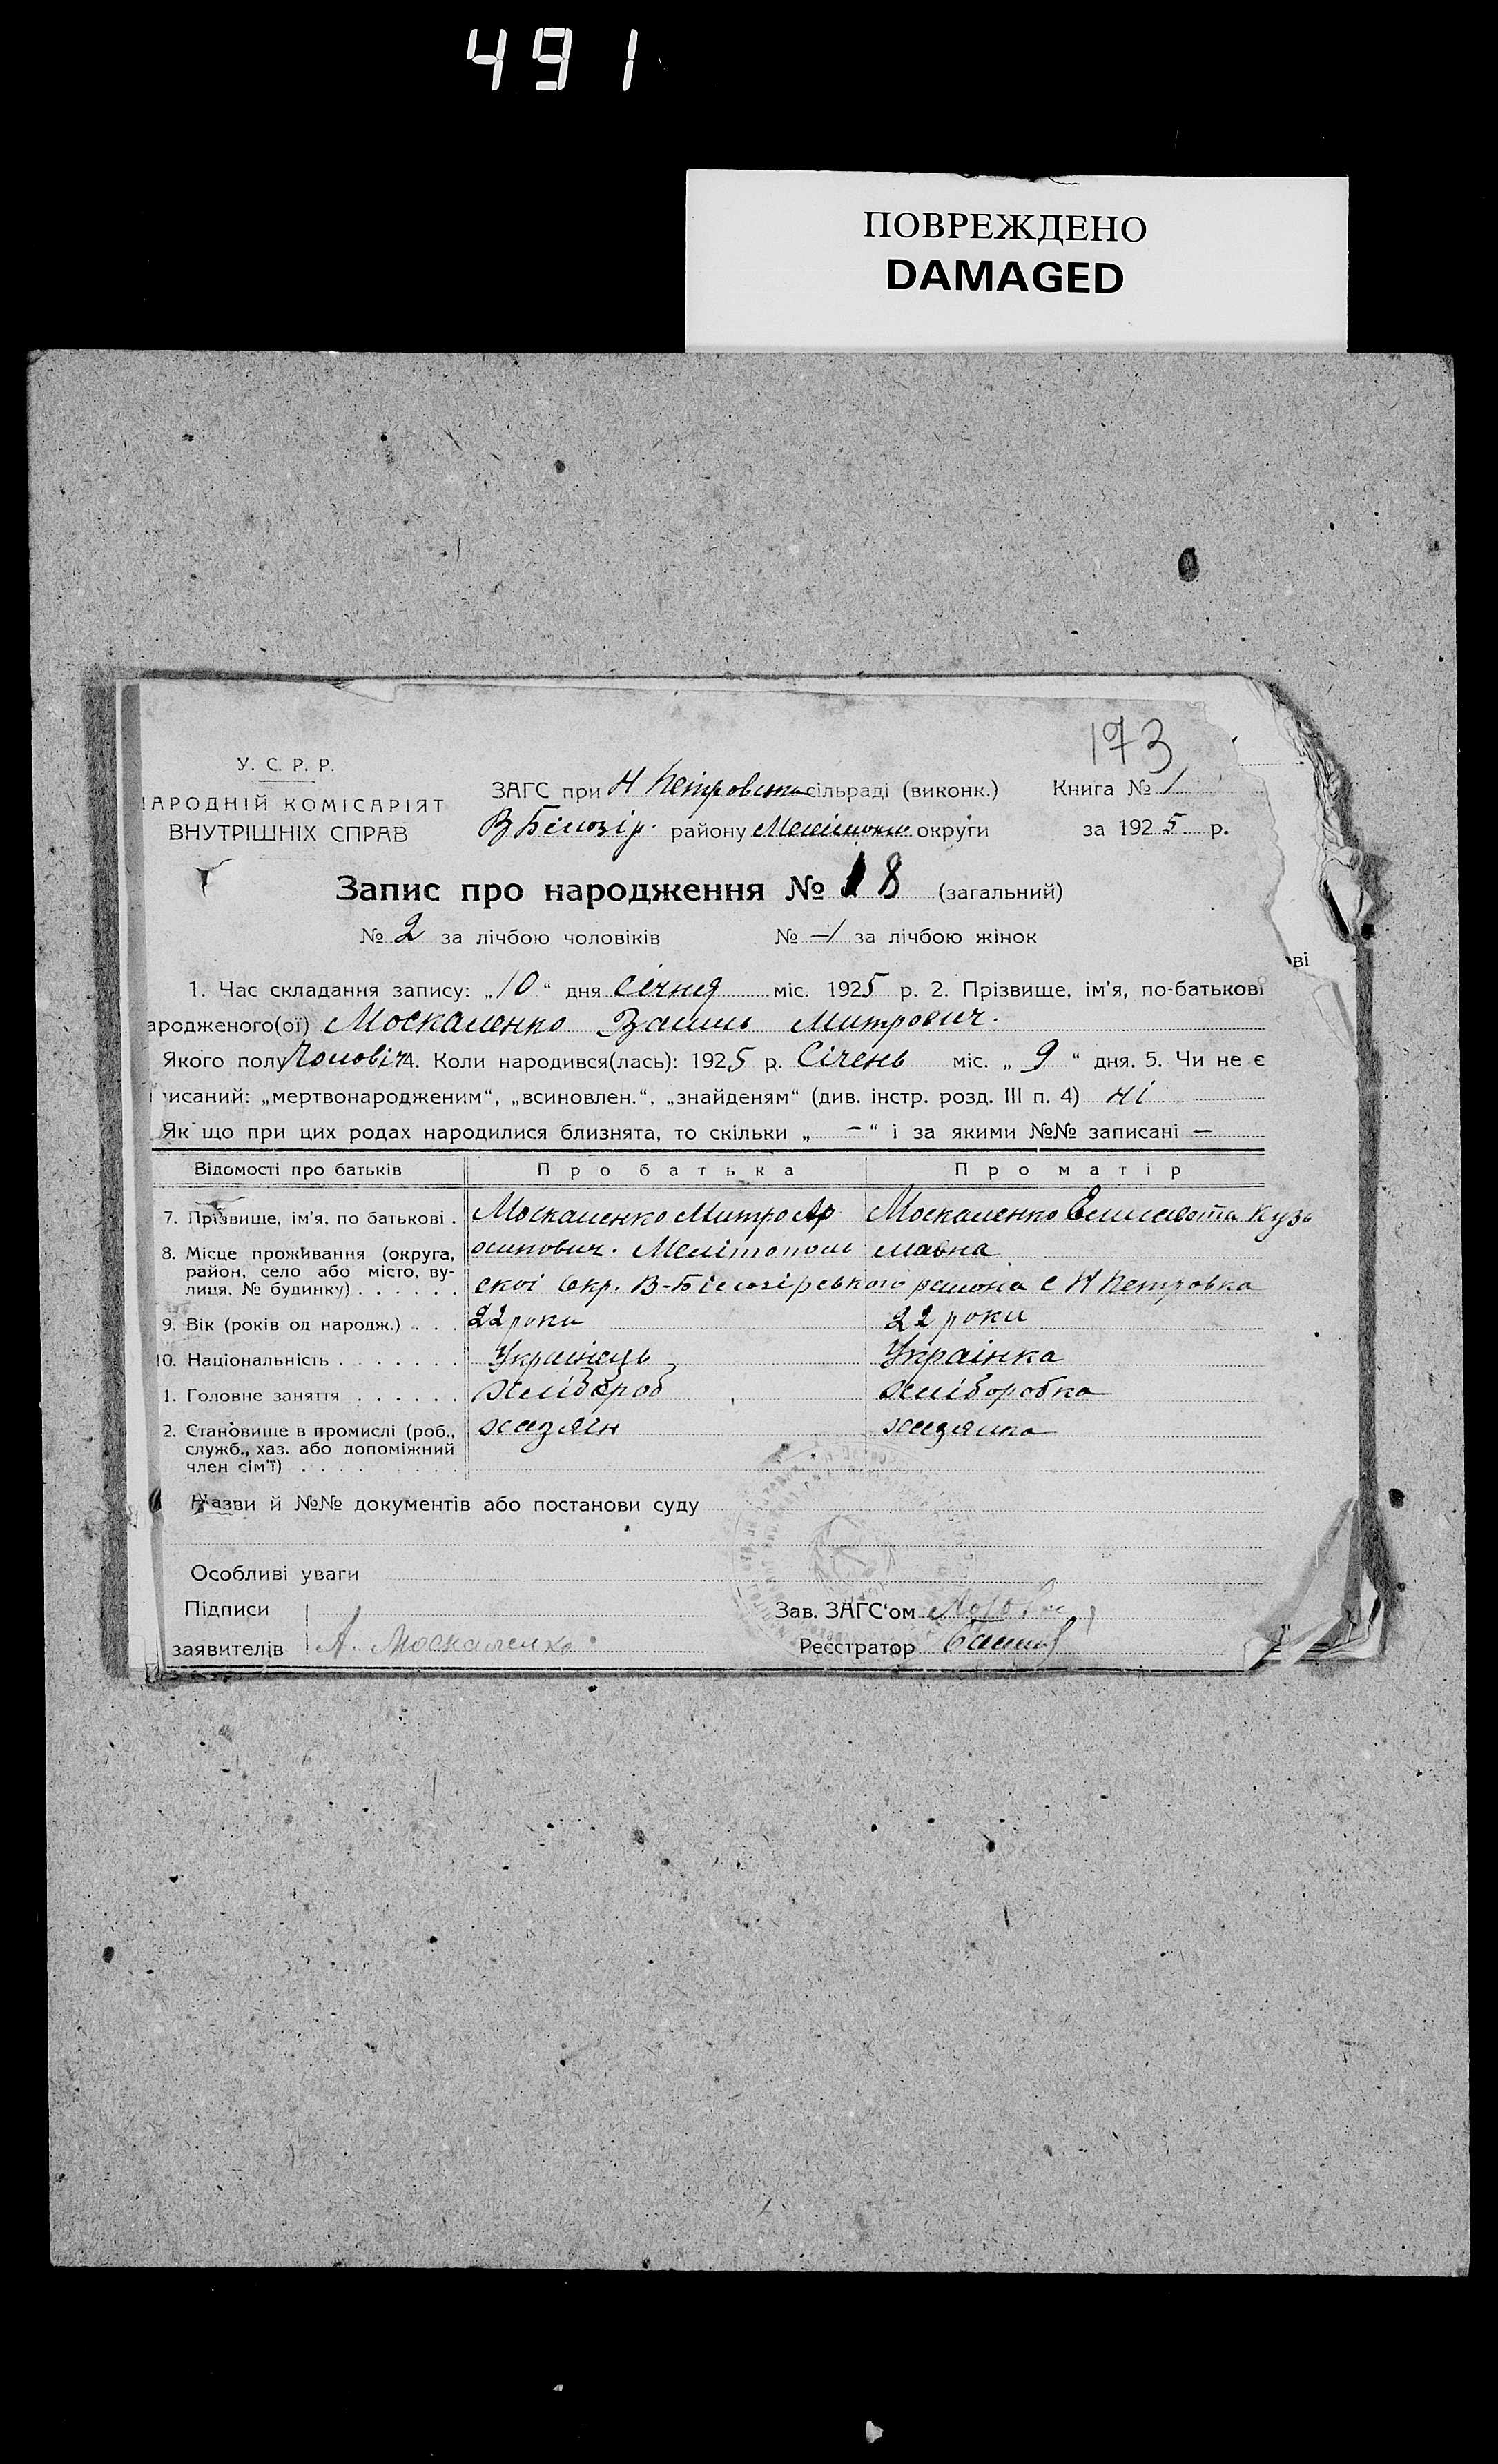 491
ПОВРЕЖДЕНО
DAMAGED
173
У. С. Р. Р.
НАРОДНІЙ КОМІСАРІЯТ
ВНУТРІШНІХ СПРАВ
ЗАГС при Н Петровськ сільраді (виконк.)
В Білозір. району округи
Книга № 1
за 1925 р.
Запис про народження № 18 (загальний)
№ 2 за лічбою чоловіків № —/ за лічбою жінок
ві
1. Час складання запису: „10“ дня Січня міс. 1925 р. 2. Прізвище, ім'я, по-батькові
ародженого(ої) Москаленко Василь Митрович.
Якого полу Чоловіч 4. Коли народився(лась): 1925 р. Січень міс. „9“ дня. 5. Чи не є
писаний: „мертвонародженим“, „всиновлен.“, „знайденям“ (див. інстр. розд. III п. 4) ні
Як що при цих родах народилися близнята, то скільки „ — “ і за якими №№ записані —
Відомості про батьків Про батька Про матір
7. Прізвище, ім'я, по батькові . Москаленко Митро Москаленко Елисавета Кузь
8. Місце проживання (округа, район, село або місто, вулиця, № будинку) Мелітополь мавна
скоі Окр. В-Білозірського района с Н Петровка
9. Вік (років од народж.) . . . 22 роки 22 роки
10. Національність . . . . . . . Українець Українка
1. Головне заняття . . . . . . хлібороб хліборобка
2. Становище в промислі (роб., хазяін хазяйка
служб., хаз. або допоміжний
член сім'ї) . . . . . . . . .
Назви й №№ документів або постанови суду
Особливі уваги
Підписи
заявителів А. Москаленко
Зав. ЗАГС'ом
Реєстратор